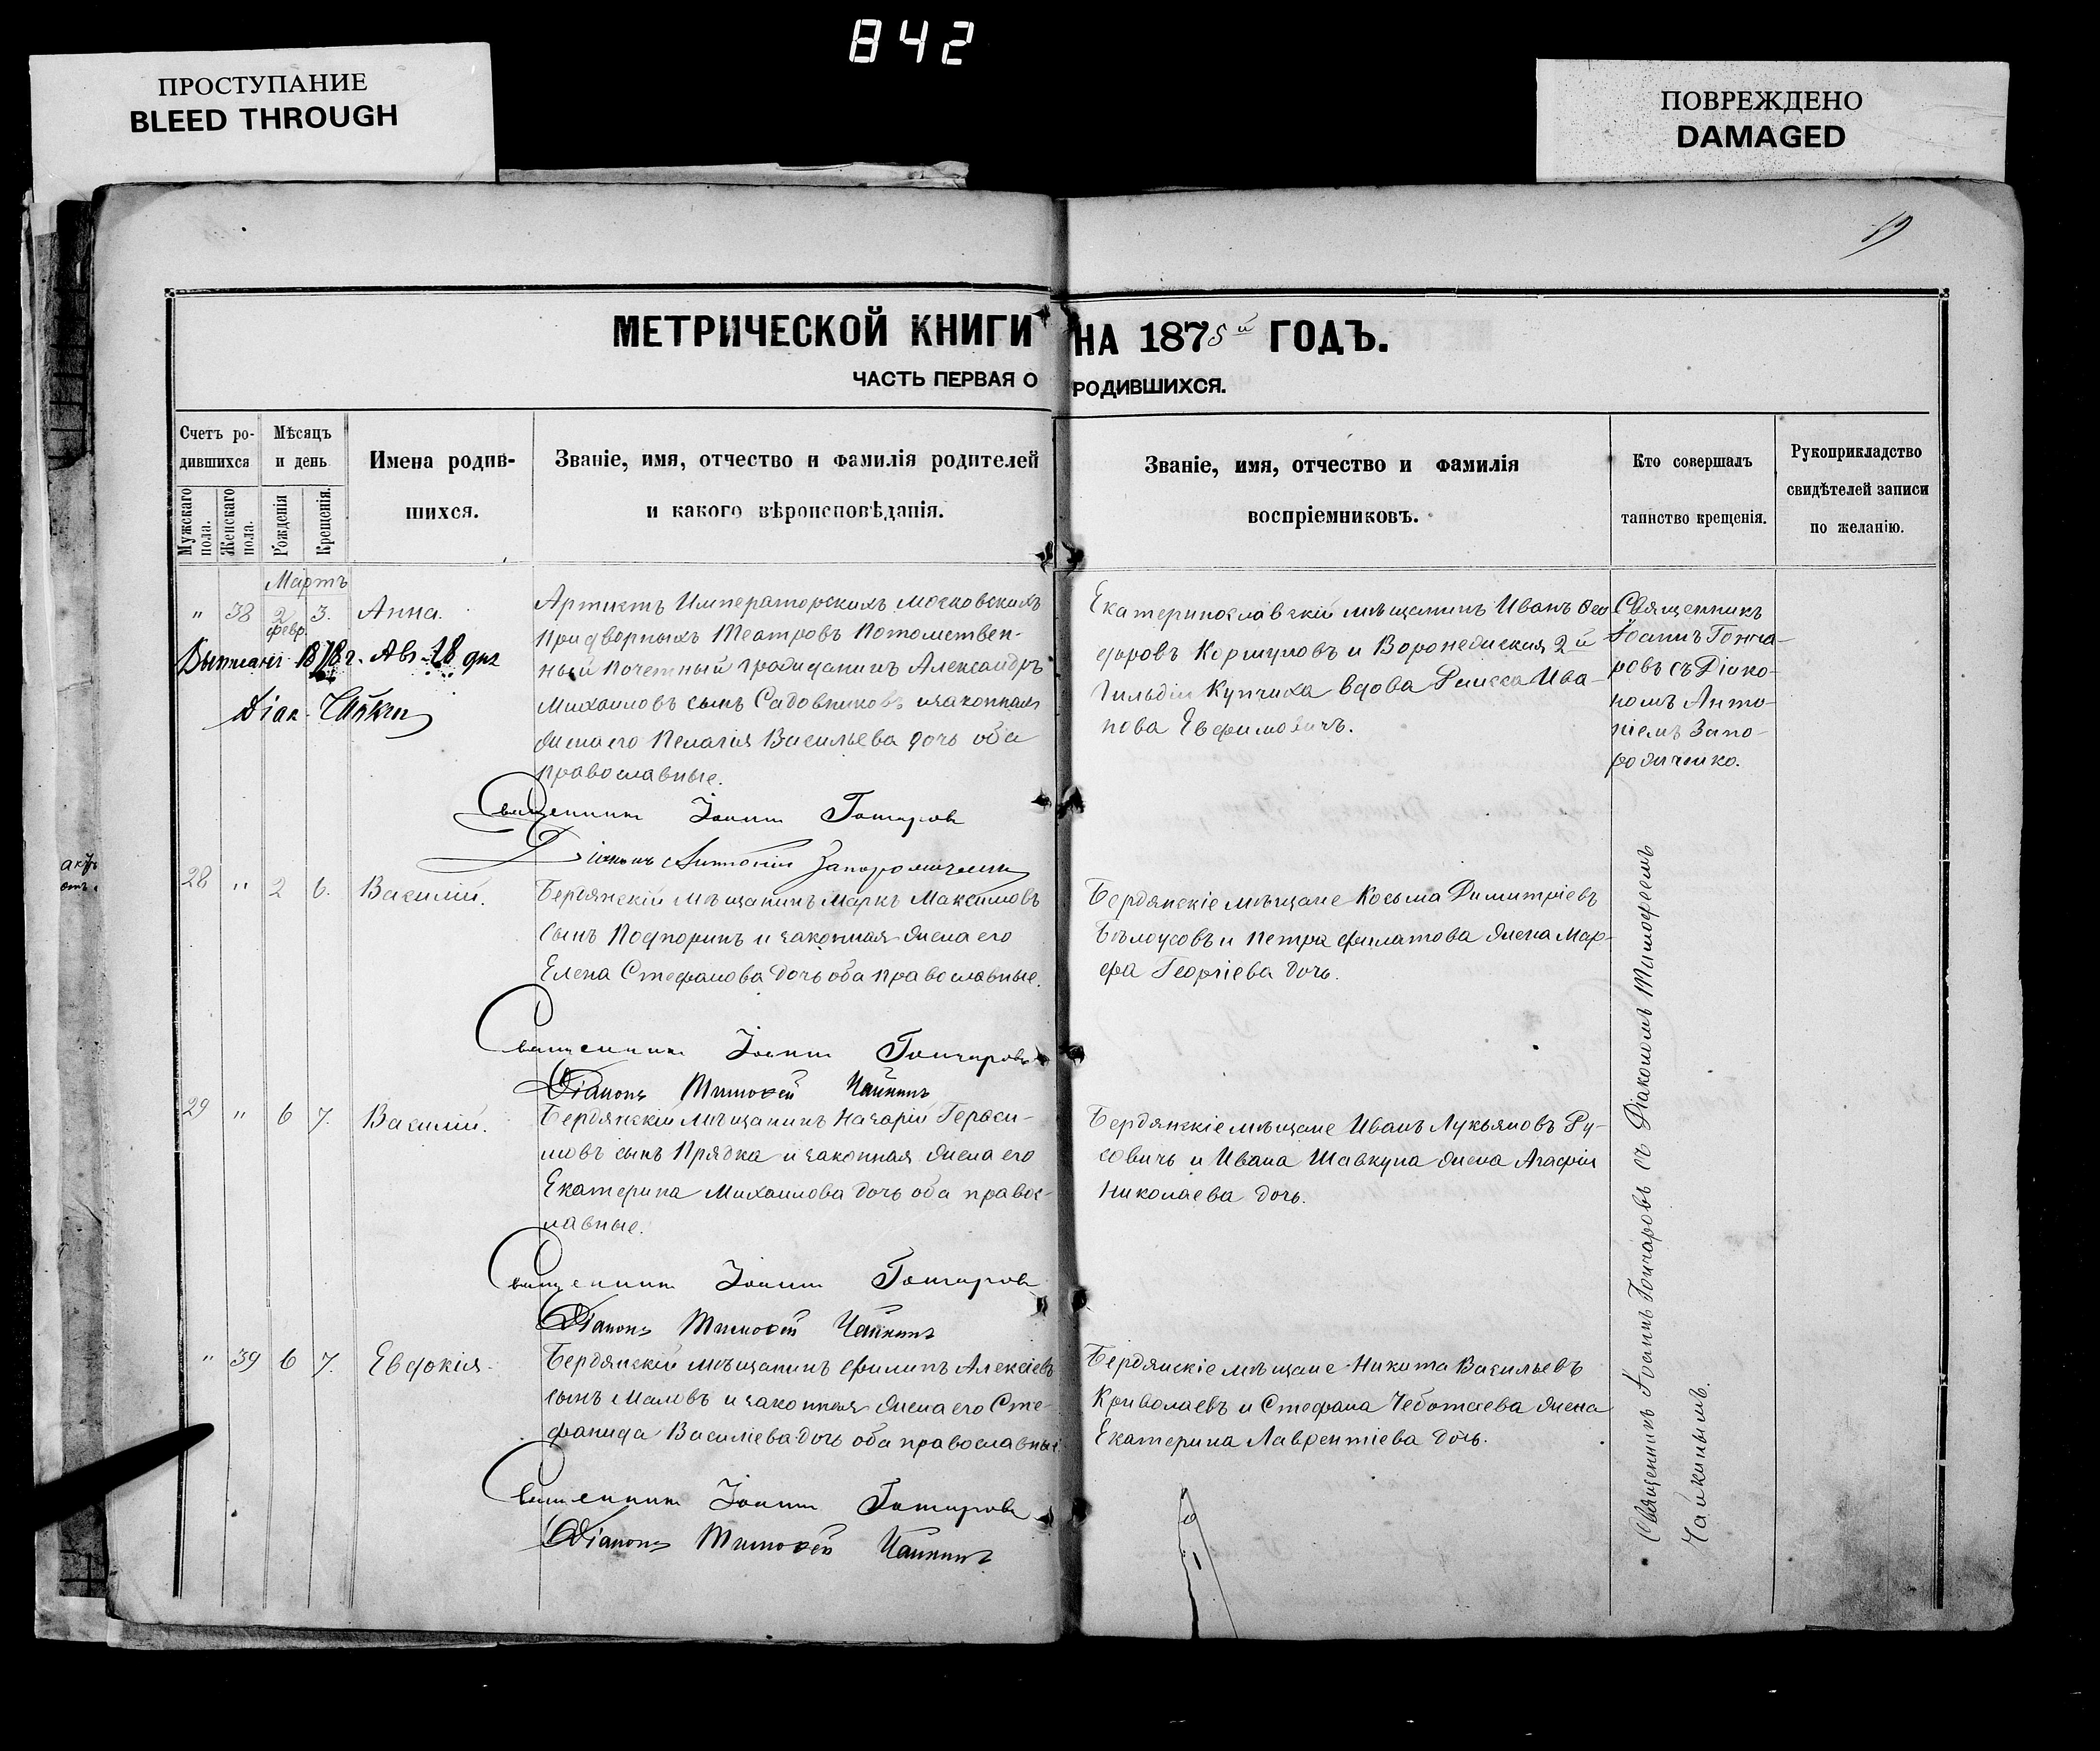 842
ПРОСТУПАНИЕ
BLEED THROUGH
ПОВРЕЖДЕНО
DAMAGED
МЕТРИЧЕСКОЙ КНИГИ НА 1875й ГОДЪ.
ЧАСТЬ ПЕРВАЯ О РОДИВШИХСЯ.
Счетъ ро-
дившихся
Мужскаго пола.
Женскаго пола.
Мѣсяцъ
и день
Рожденія
Крещенія.
Имена родив-
шихся.
Званіе, имя, отчество и фамилія родителей
и какого вѣроисповѣданія.
Званіе, имя, отчество и фамилія
воспріемниковъ.
Кто совершалъ
таинство крещенія.
Рукоприкладство
свидѣтелей записи
по желанію.
Мартъ
" 38 2 февр. 3. Анна.
Артистъ Императорскихъ Московскихъ
придворныхъ Театровъ Потомствен-
ный Почетный гражданинъ Александръ
Михаиловъ сынъ Садовниковъ и законная
жена его Пелагія Васильева дочь оба
православные.
Екатеринославскій мѣщанинъ Иванъ Фео
доровъ Коршуновъ и Воронежская 2й
Гильдіи Купчиха вдова Раисса Ива-
нова Евфимовичъ.
Священникъ
Іоаннъ Гонча-
ровъ съ Діако-
номъ Анто-
ніемъ Запо-
рожченко.
1878 г. Авг. 28 дня
Священникъ Іоаннъ Гончаровъ
Діаконъ Антоній Запорожченко
28 " 2 6. Василій.
Бердянскій мѣщанинъ Маркъ Максимовъ
сынъ Подпоринъ и законная жена его
Елена Стефанова дочь оба православные.
Бердянскіе мѣщане Косьма Димитріевъ
Бѣлоусовъ и Петра Филатова жена Мар-
фа Георгіева дочь.
Священникъ Іоаннъ Гончаровъ
Діаконъ Тимофей Чайкинъ
29 " 6 7. Василій.
Бердянскій мѣщанинъ Назарій Гераси-
мовъ сынъ Прядка и законная жена его
Екатерина Михаилова дочь оба правос-
лавные.
Бердянскіе мѣщане Иванъ Лукьяновъ Ру-
совичъ и Ивана Шавкуна жена Агафія
Николаева дочь.
Священникъ Іоаннъ Гончаровъ
Діаконъ Тимофей Чайкинъ
" 39 6 7. Евдокія.
Бердянскій мѣщанинъ Филипъ Алексіевъ
сынъ Маловъ и законная жена его Сте-
фанида Василіева дочь оба православные
Бердянскіе мѣщане Никита Васильевъ
Криволаевъ и Стефана Чеботаева жена
Екатерина Лаврентіева дочь.
Священникъ Іоаннъ Гончаровъ
Діаконъ Тимофей Чайкинъ
Священникъ Іоаннъ Гончаровъ съ Діакономъ Тимофеемъ
Чайкинымъ.